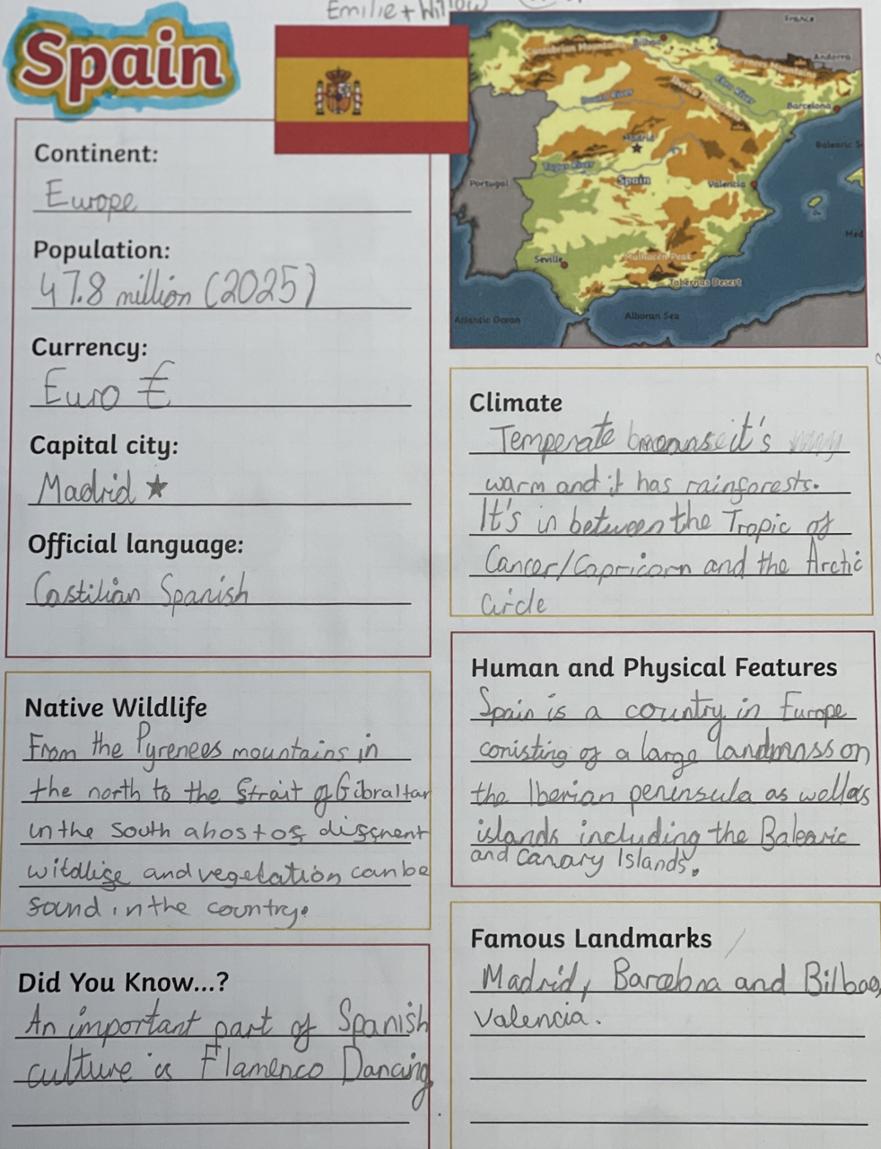 Emilie + Willow
Spain
France
Bilbao
Cantabrian Mountains
Andorra
Pyrenees Mountains
Ebro River
Iberian Mountains
Douro River
Barcelona
Madrid
Balearic S
Tagus River
Portugal
Spain
Valencia
Med
Seville
Mulhacen Peak
Tabernas Desert
Atlantic Ocean
Alboran Sea
Continent:
Europe
Population:
47.8 million (2025)
Currency:
Euro €
Capital city:
Madrid ★
Official language:
Castilian Spanish
Climate
Temperate because it's very
warm and it has rainforests.
It's in between the Tropic of
Cancer/Capricorn and the Arctic
circle
Native Wildlife
From the Pyrenees mountains in
the north to the Strait of Gibraltar
in the south a host of
wildlife and vegetation can be
found in the country.
Human and Physical Features
Spain is a country in Europe
conisting of a large landmass on
the Iberian peninsula as well as
islands including the Balearic
and Canary Islands.
Did You Know...?
An important part of Spanish
culture is Flamenco Dancing
Famous Landmarks
Madrid, Barcelona and Bilbao,
Valencia.